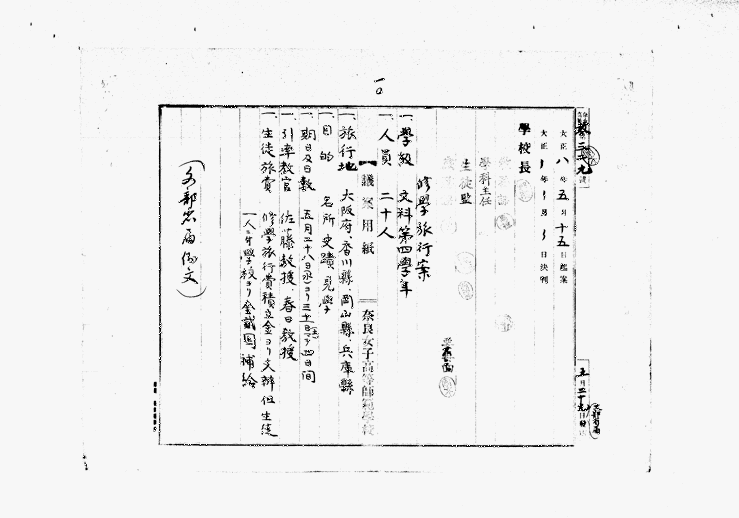 一〇
大正 八 年 五 月 十五 日起案
大正 年 月 日決判
學校長
學科主任
生徒監
修學旅行案
一、學級 文科第四學年
一、人員 二十人
議案用紙
奈良女子高等師範學校
一、旅行地 大阪府、香川縣、岡山縣、兵庫縣
一、目的 名所史蹟見學
一、期日及日數 五月二十八日(水)ヨリ三十一日(土)マデ四日間
一、引率教官 佐藤教授、春日教授
一、生徒旅費 修學旅行費積立金ヨリ支辨但生徒
一人ニ付學校ヨリ金貳圓補給
五月二十九日